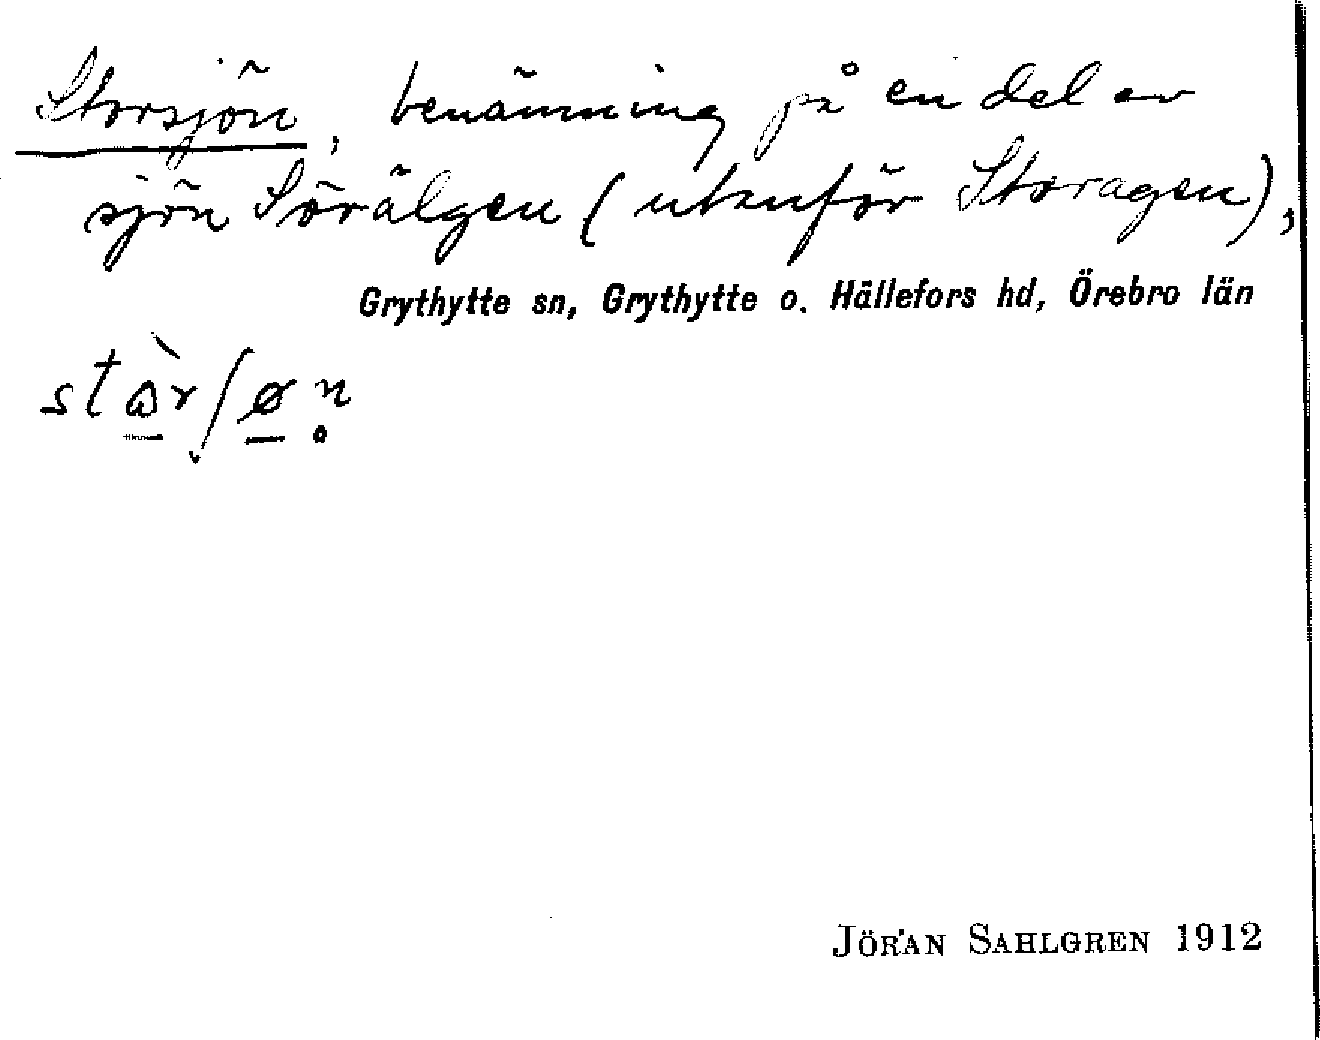 Storsjön, benämning på en del av
sjön Sörälgen (utanför Storagen),
Grythytte sn, Grythytte o. Hällefors hd, Örebro län
JÖRAN SAHLGREN 1912